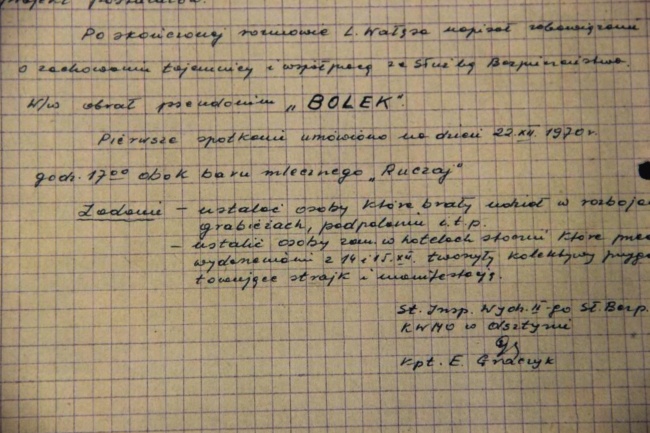 projekt
Po skończonej rozmowie L. Wałęsa napisał zobowiązanie
o zachowaniu tajemnicy i współpracy ze Służbą Bezpieczeństwa.
W/w obrał pseudonim „BOLEK".
Pierwsze spotkanie umówiono na dzień 22.XII.1970 r.
godz. 17⁰⁰ obok baru mlecznego „Ruczaj"
Zadanie – ustalać osoby które brały udział w rozboja
grabieżach, podpaleniu i.t.p.
– ustalić osoby zam. w hotelach stoczni które
wydarzeniami z 14 i 15.XII. tworzyły kolektywy przygo
towujące strajk i manifestację.
St. Insp. Wydz. II-go Sł. Bezp.
KWMO w Olsztynie
kpt. E. Graczyk